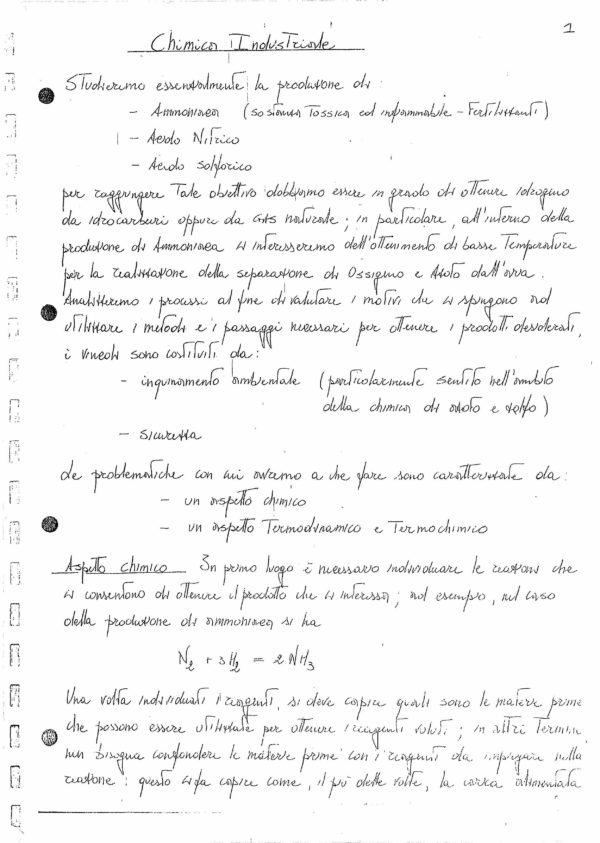 1
Chimica Industriale
Studieremo essenzialmente la produzione di:
- Ammoniaca (sostanza Tossica ed infiammabile - Fertilizzanti)
- Acido Nitrico
- Acido solforico
per raggiungere Tale obiettivo dobbiamo essere in grado di ottenere idrogeno
da idrocarburi oppure da gas naturale; in particolare, all'interno della
produzione di Ammoniaca ci interesseremo dell'ottenimento di basse Temperature
per la realizzazione della separazione di Ossigeno e Azoto dall'aria.
Analizzeremo i processi al fine di valutare i motivi che ci spingono ad
utilizzare i metodi e i passaggi necessari per ottenere i prodotti desiderati,
i vincoli sono costituiti da:
- inquinamento ambientale (particolarmente sentito nell'ambito
della chimica di azoto e zolfo)
- sicurezza
Le problematiche con cui avremo a che fare sono caratterizzate da:
- un aspetto chimico
- un aspetto Termodinamico e Termochimico
Aspetto chimico In primo luogo è necessario individuare le reazioni che
ci consentono di ottenere il prodotto che ci interessa; ad esempio, nel caso
della produzione di ammoniaca si ha
N2 + 3H2 = 2NH3
Una volta individuati i reagenti, si deve capire quali sono le materie prime
che possono essere utilizzate per ottenere i reagenti voluti; in altri Termini
non bisogna confondere le materie prime con i reagenti da impiegare nella
reazione: questo ci fa capire come, il più delle volte, la carica alimentata